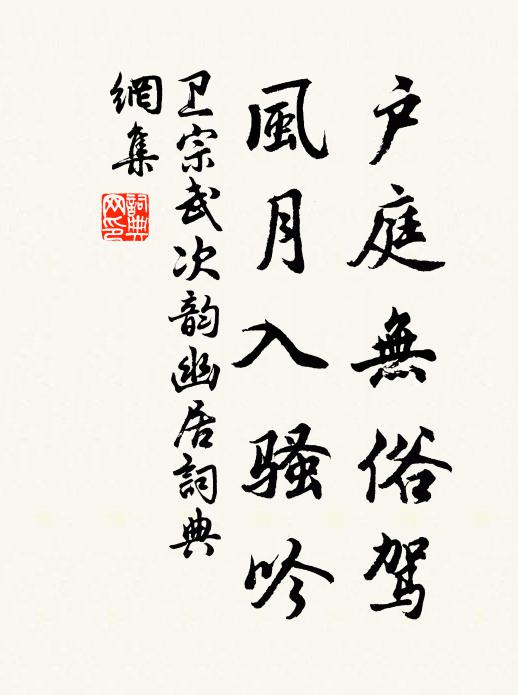 户庭無俗驾
風月入骚吟
卫宗武次韵幽居詞典
網集
詞典网印